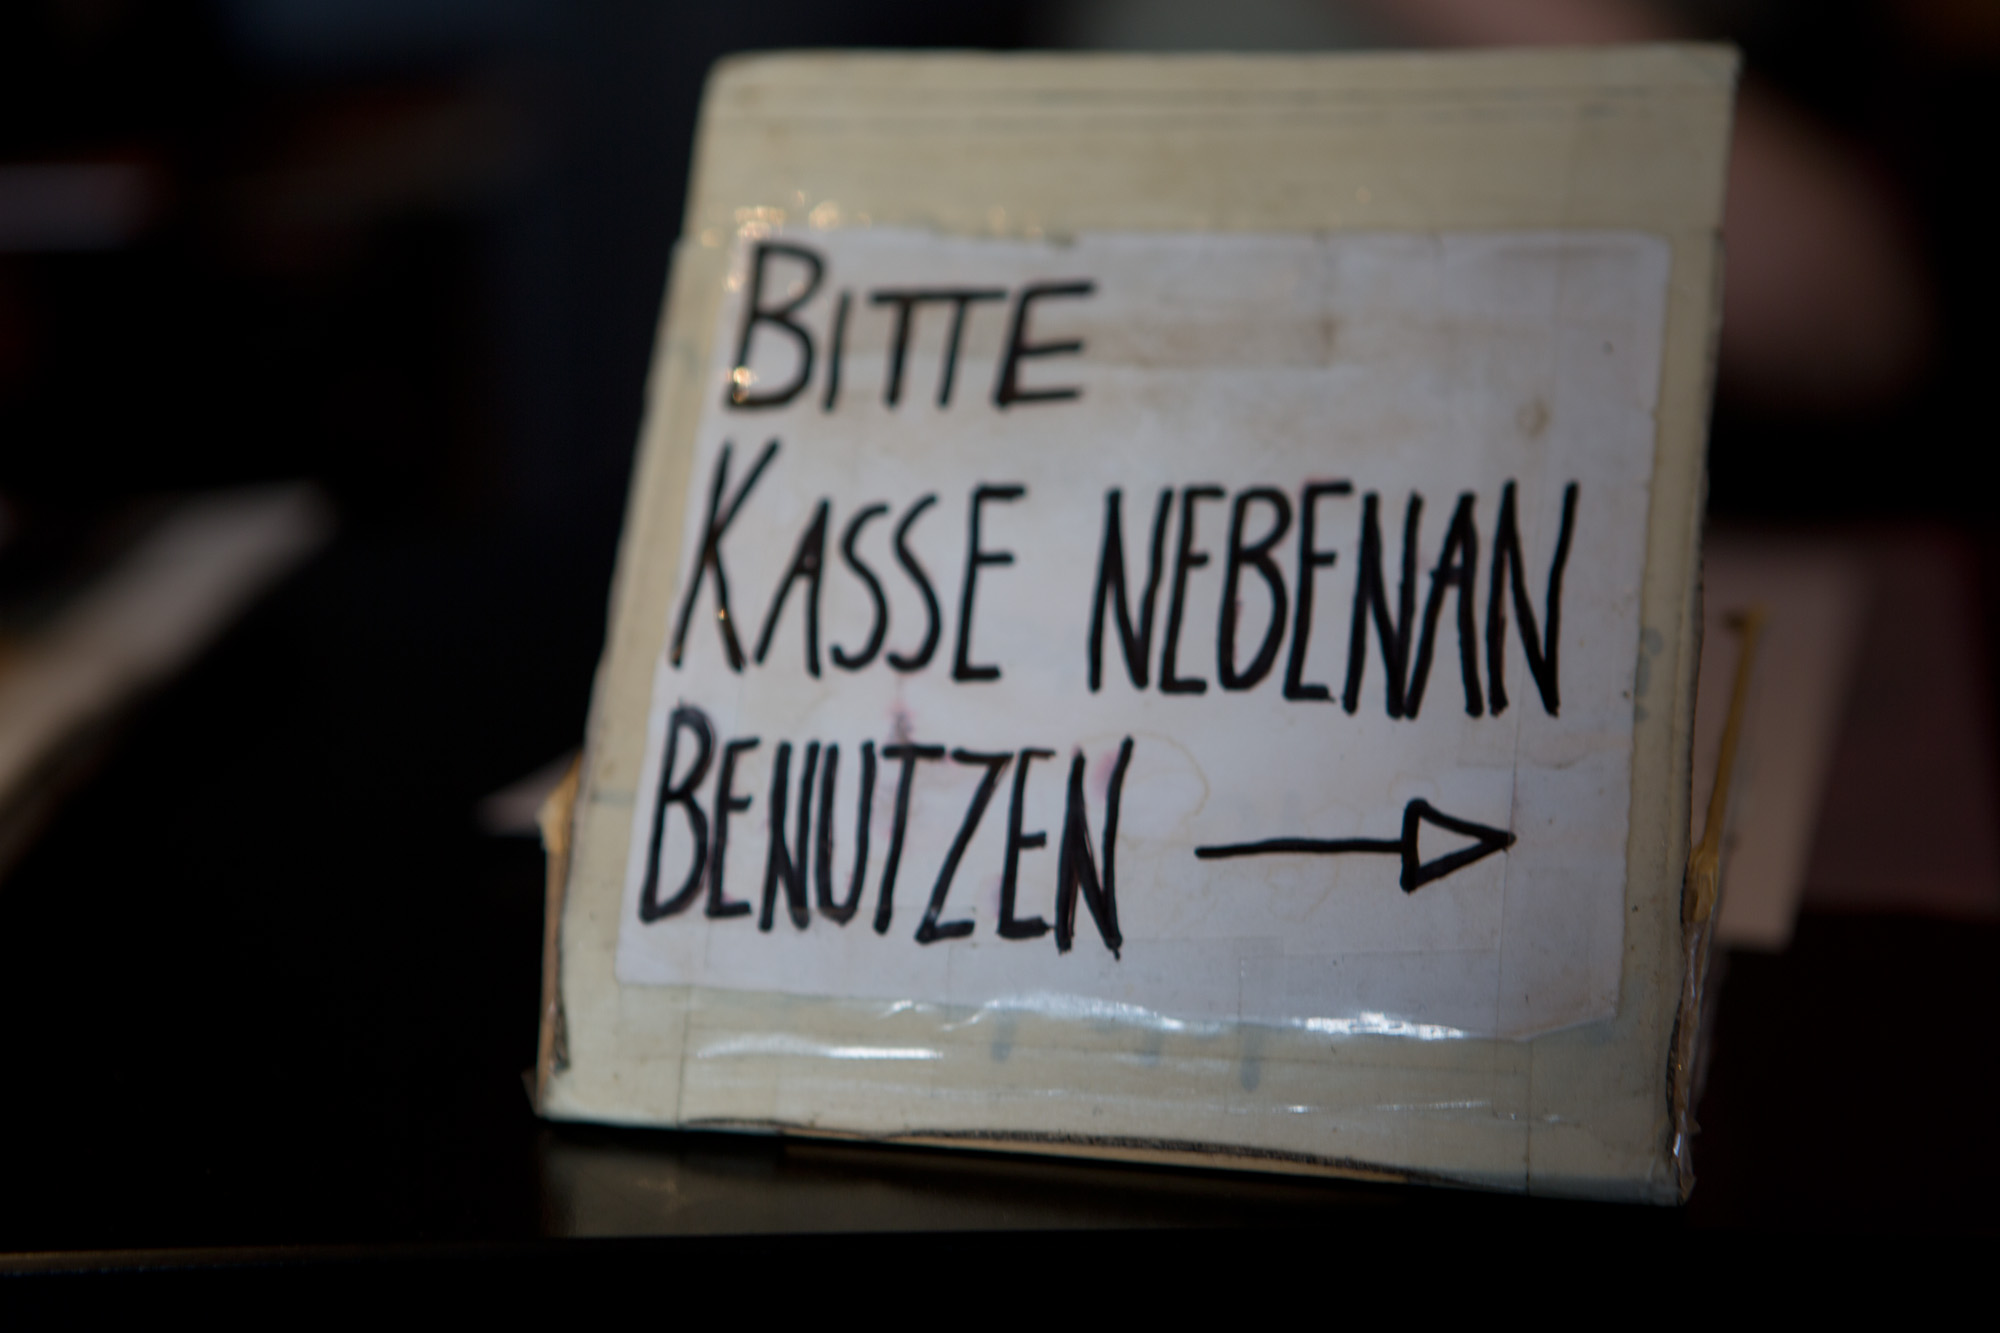 BITTE
KASSE NEBENAN
BENUTZEN →